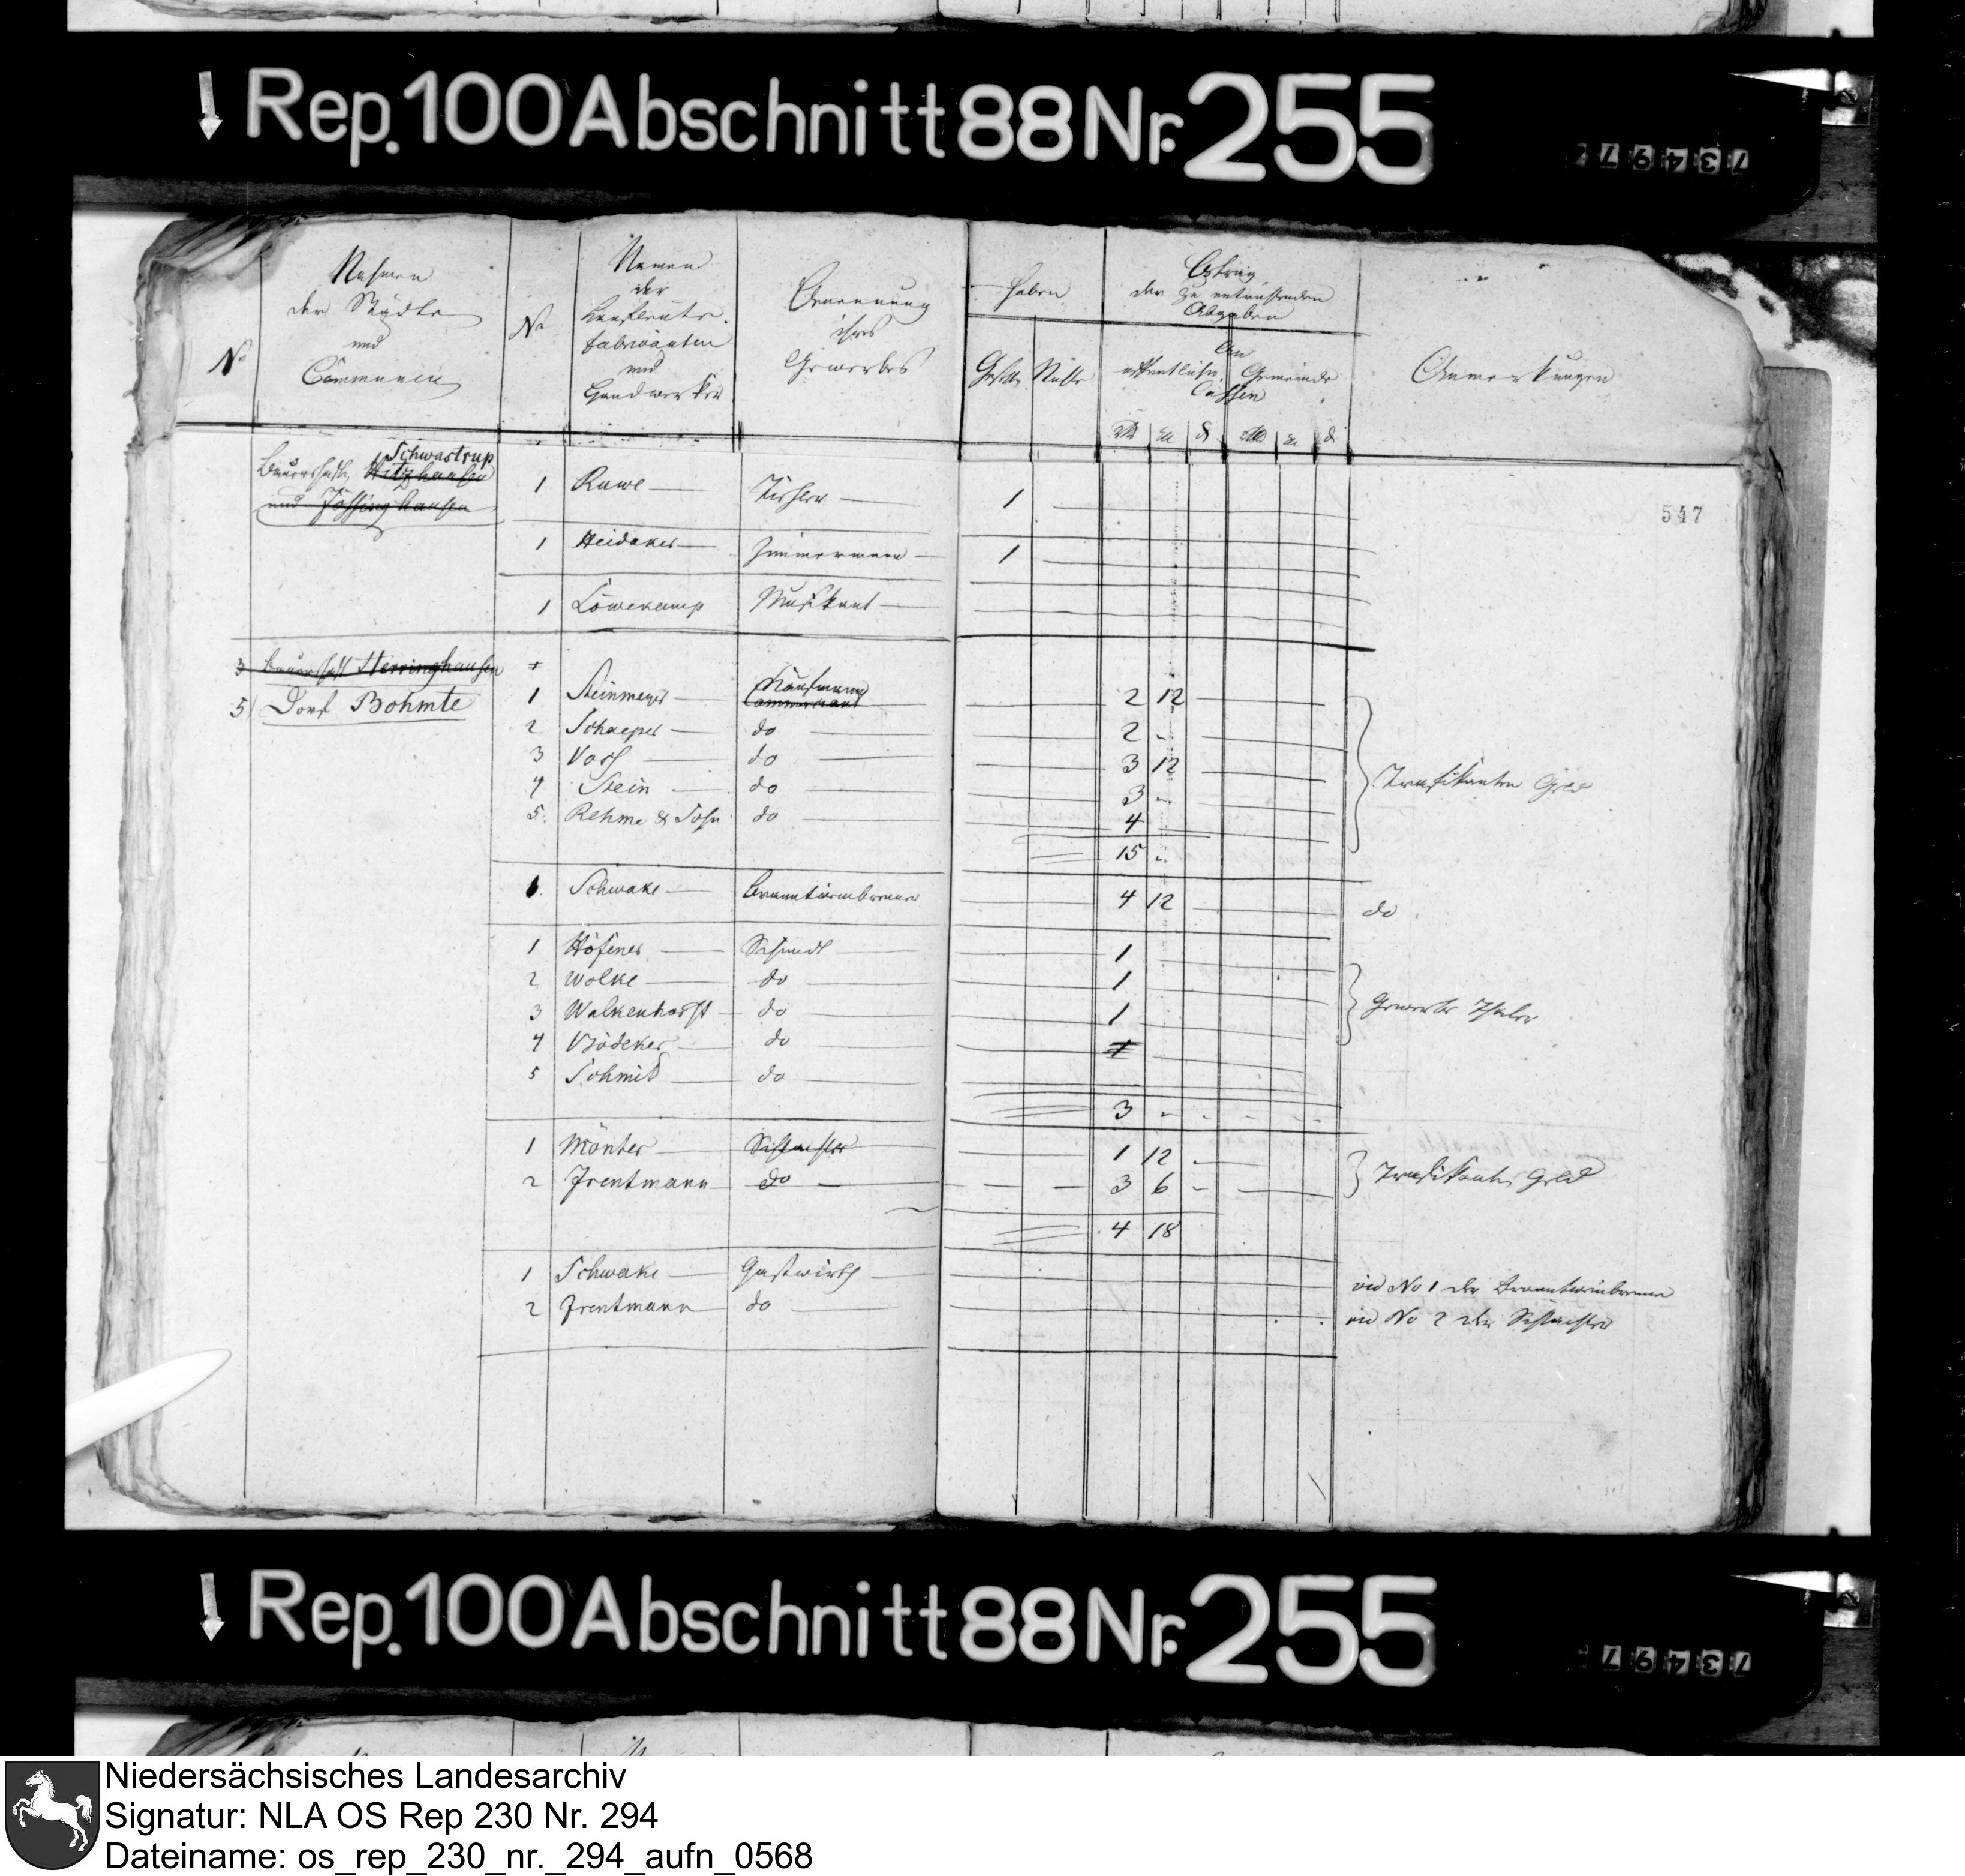 Rep. 100 Abschnitt 88 Nr. 255
73497
No
Nahmen
der Städte
und
Communen
No
Namen
der
Kaufleute.
Fabricanten
und
Handwerker
Benennung
ihres
Gewerbes
Haben
Betrag
der zu entrichtenden
Abgaben
Gesellen
An
öffentliche Gemeinde
Cassen
Anmerkungen
547
Bauerschaft Hitzhausen Schwastrup
und Jöstinghausen
1 Ruwe Tischler 1
1 Heidaker Zimmermann 1
1 Löwekamp Musikant
3 Bauerschaft Herringhausen
5 Dorf Bohmte
1 Steinmeyer Kaufmann 2 12
2 Schaeper do 2 -
3 Voss do 3 12
4 Stein do 3 -
5. Rehme & Sohn do 4
Trafikanten Geld
15 -
1. Schwake Branntweinbrenner 4 12 do
1 Höfener Schmidt 1
2 Wolke do 1
3 Walkenhorst do 1
4 Bödeker do 1
5 Schmid do
Gewerbe Thaler
3 -
1 Mönter Schlachter 1 12
2 Frentmann do 3 6 -
Trafikanten Geld
4 18
1 Schwake Gastwirth vid No 1 der Branntweinbrenner
2 Frentmann do vid No 2 der Schlachter
Rep. 100 Abschnitt 88 Nr. 255
73497
Niedersächsisches Landesarchiv
Signatur: NLA OS Rep 230 Nr. 294
Dateiname: os_rep_230_nr._294_aufn_0568